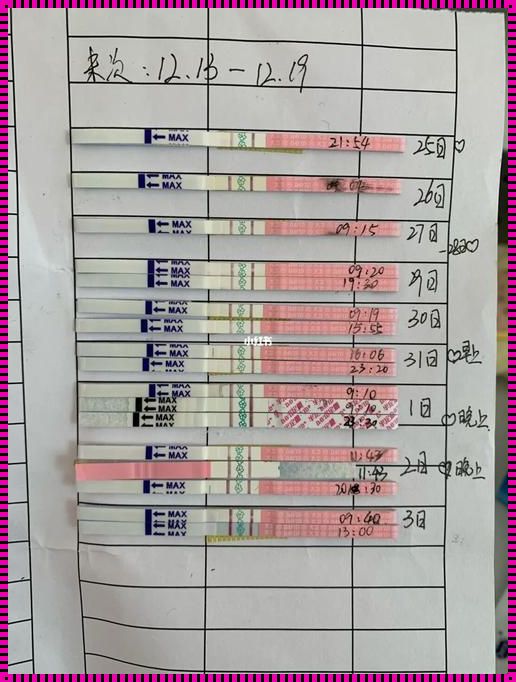 来次：12.13-12.19
MAX 21:54 25日♡
MAX
MAX 26日
MAX 09:15 27日
28日♡
MAX 09:20
MAX 19:30 29日
MAX 09:19
MAX 15:55 30日
小红书
MAX 16:06
MAX 23:20 31日 ♡早上
MAX 9:10
MAX 9:10 1日
MAX 23:30 ♡晚上
MAX 11:43
11:43 2日 ♡晚上
MAX
MAX 09:40
MAX 13:00 3日
MAX